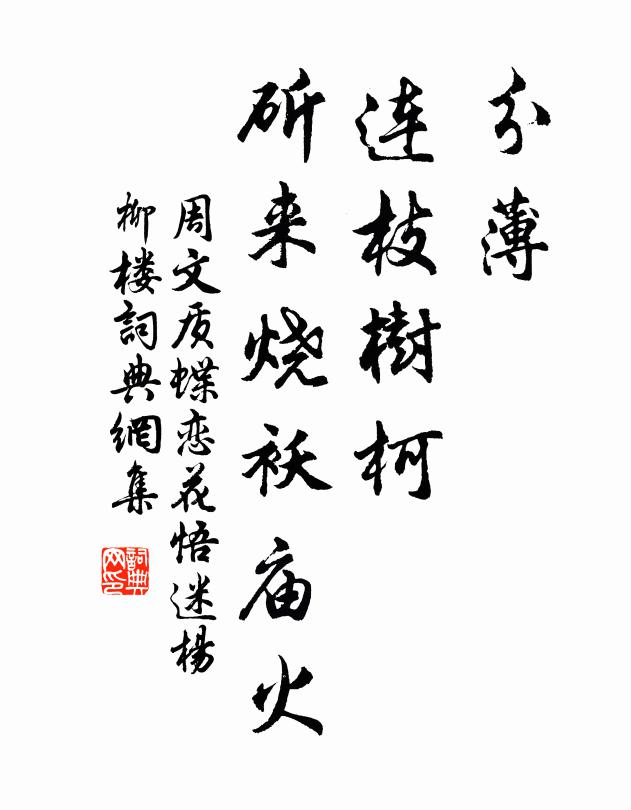 分薄
连枝樹柯
斫来烧袄庙火
周文质蝶恋花悟迷楊
柳楼詞典網集
詞典
网印